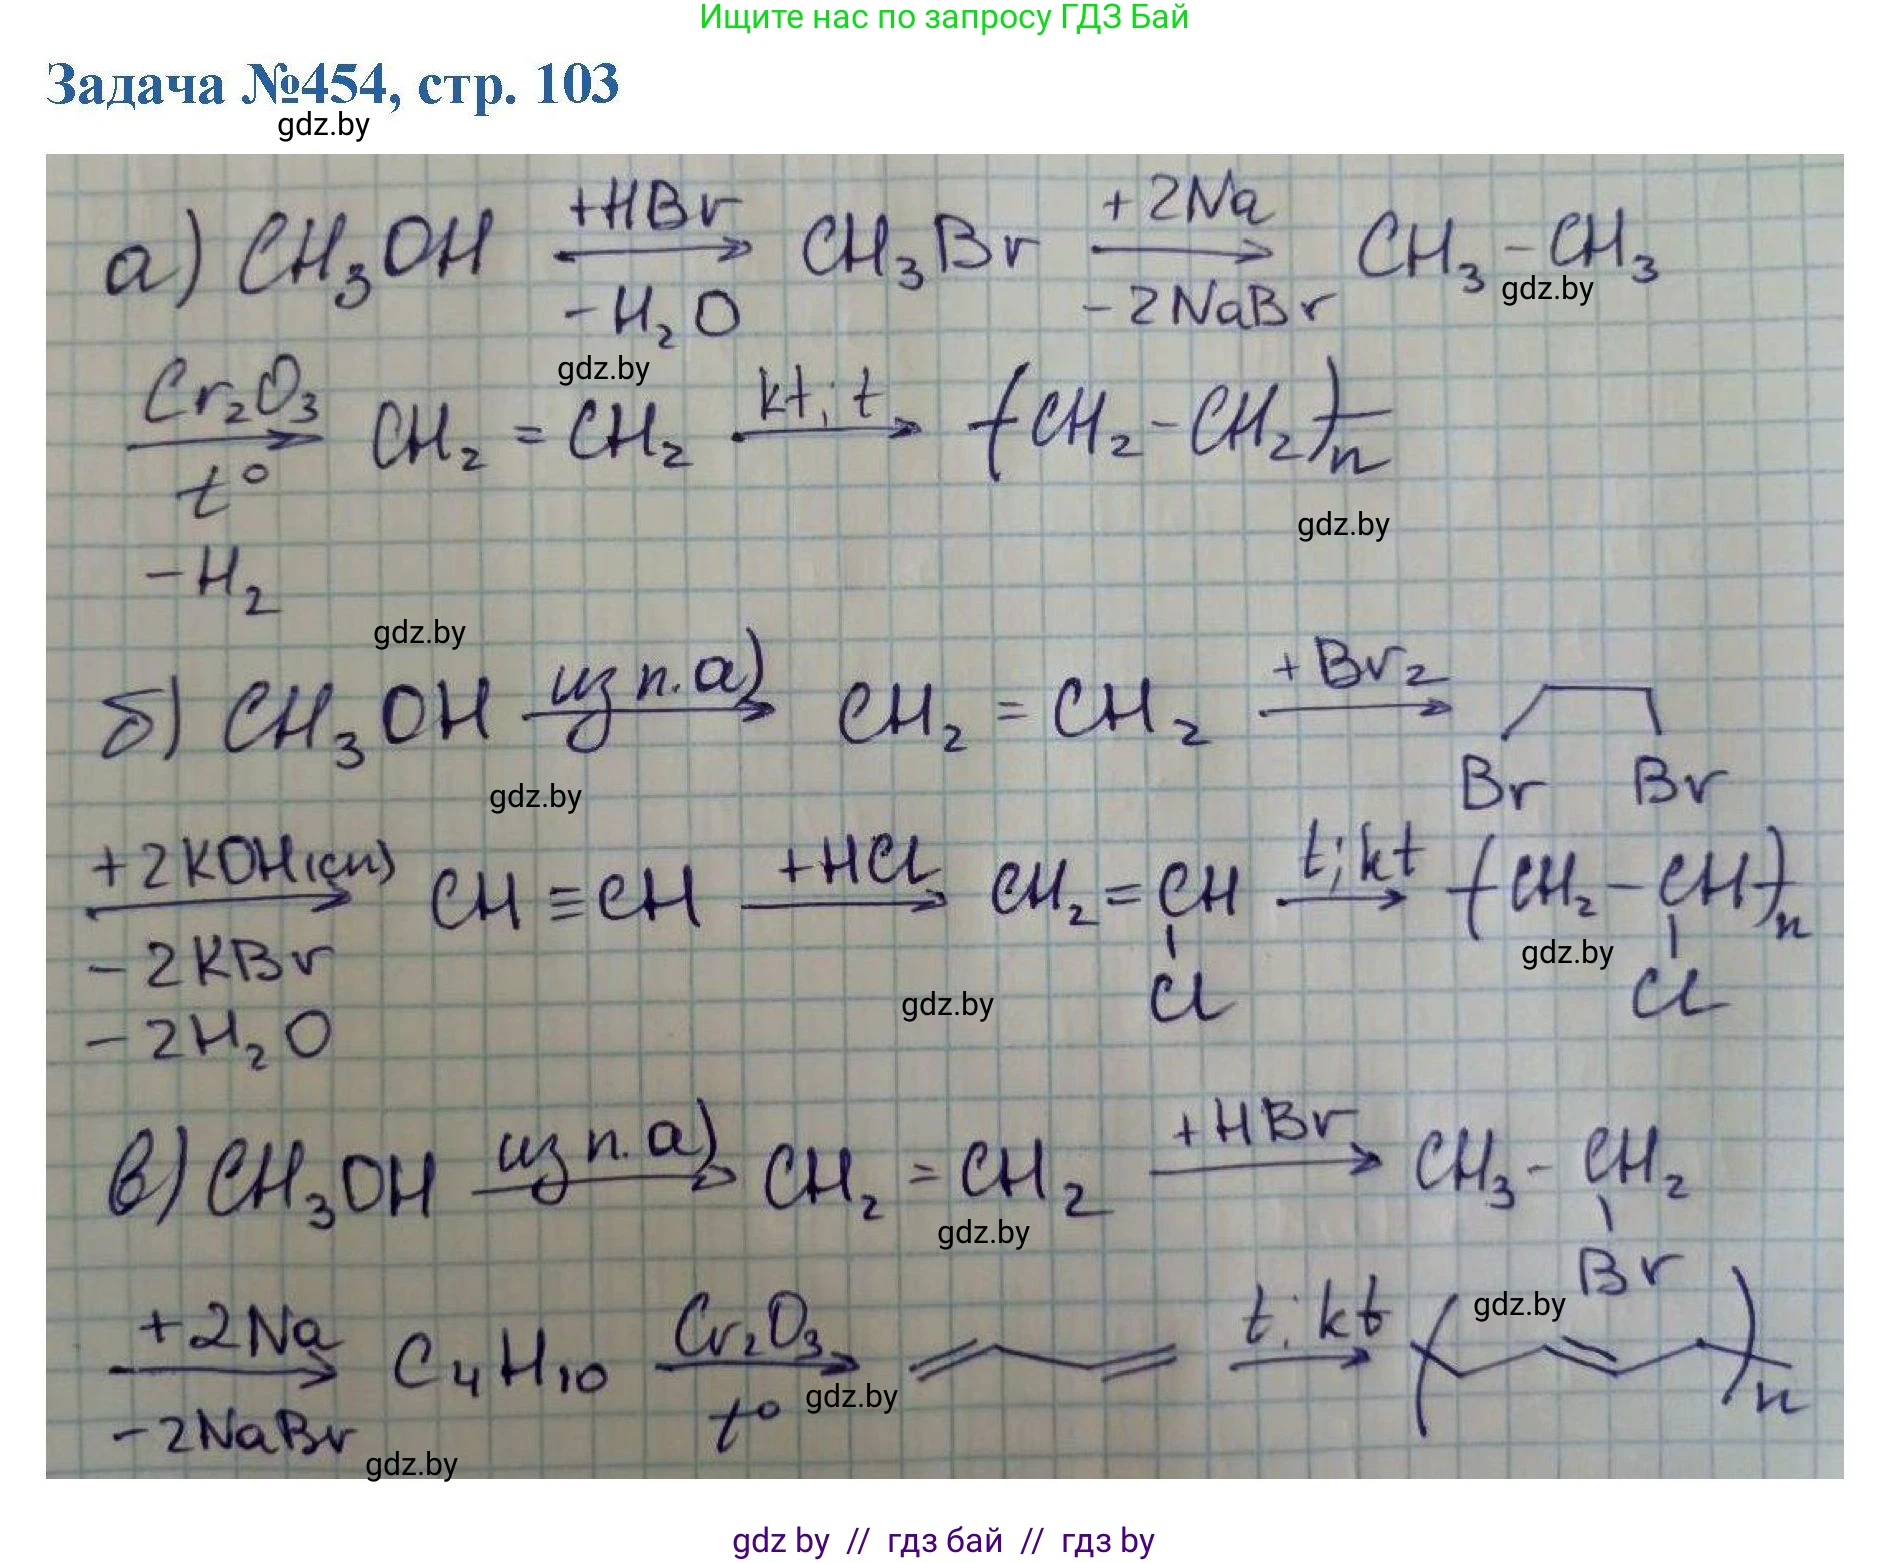 Ищите нас по запросу ГДЗ Бай
Задача №454, стр. 103
gdz.by
а) CH₃OH +HBr −H₂O CH₃Br +2Na −2NaBr CH₃−CH₃
gdz.by
gdz.by
Cr₂O₃ t° −H₂ CH₂=CH₂ kt; t (CH₂−CH₂)n
gdz.by
gdz.by
б) CH₃OH из п. а) CH₂=CH₂ +Br₂ Br Br
gdz.by
+2KOH(сп) −2KBr −2H₂O CH≡CH +HCl CH₂=CH Cl t; kt (CH₂−CH)n Cl
gdz.by
gdz.by
в) CH₃OH из п. а) CH₂=CH₂ +HBr CH₃−CH₂ Br
gdz.by
gdz.by
+2Na −2NaBr C₄H₁₀ Cr₂O₃ t° t; kt n
gdz.by
gdz.by
gdz by // гдз бай // гдз by